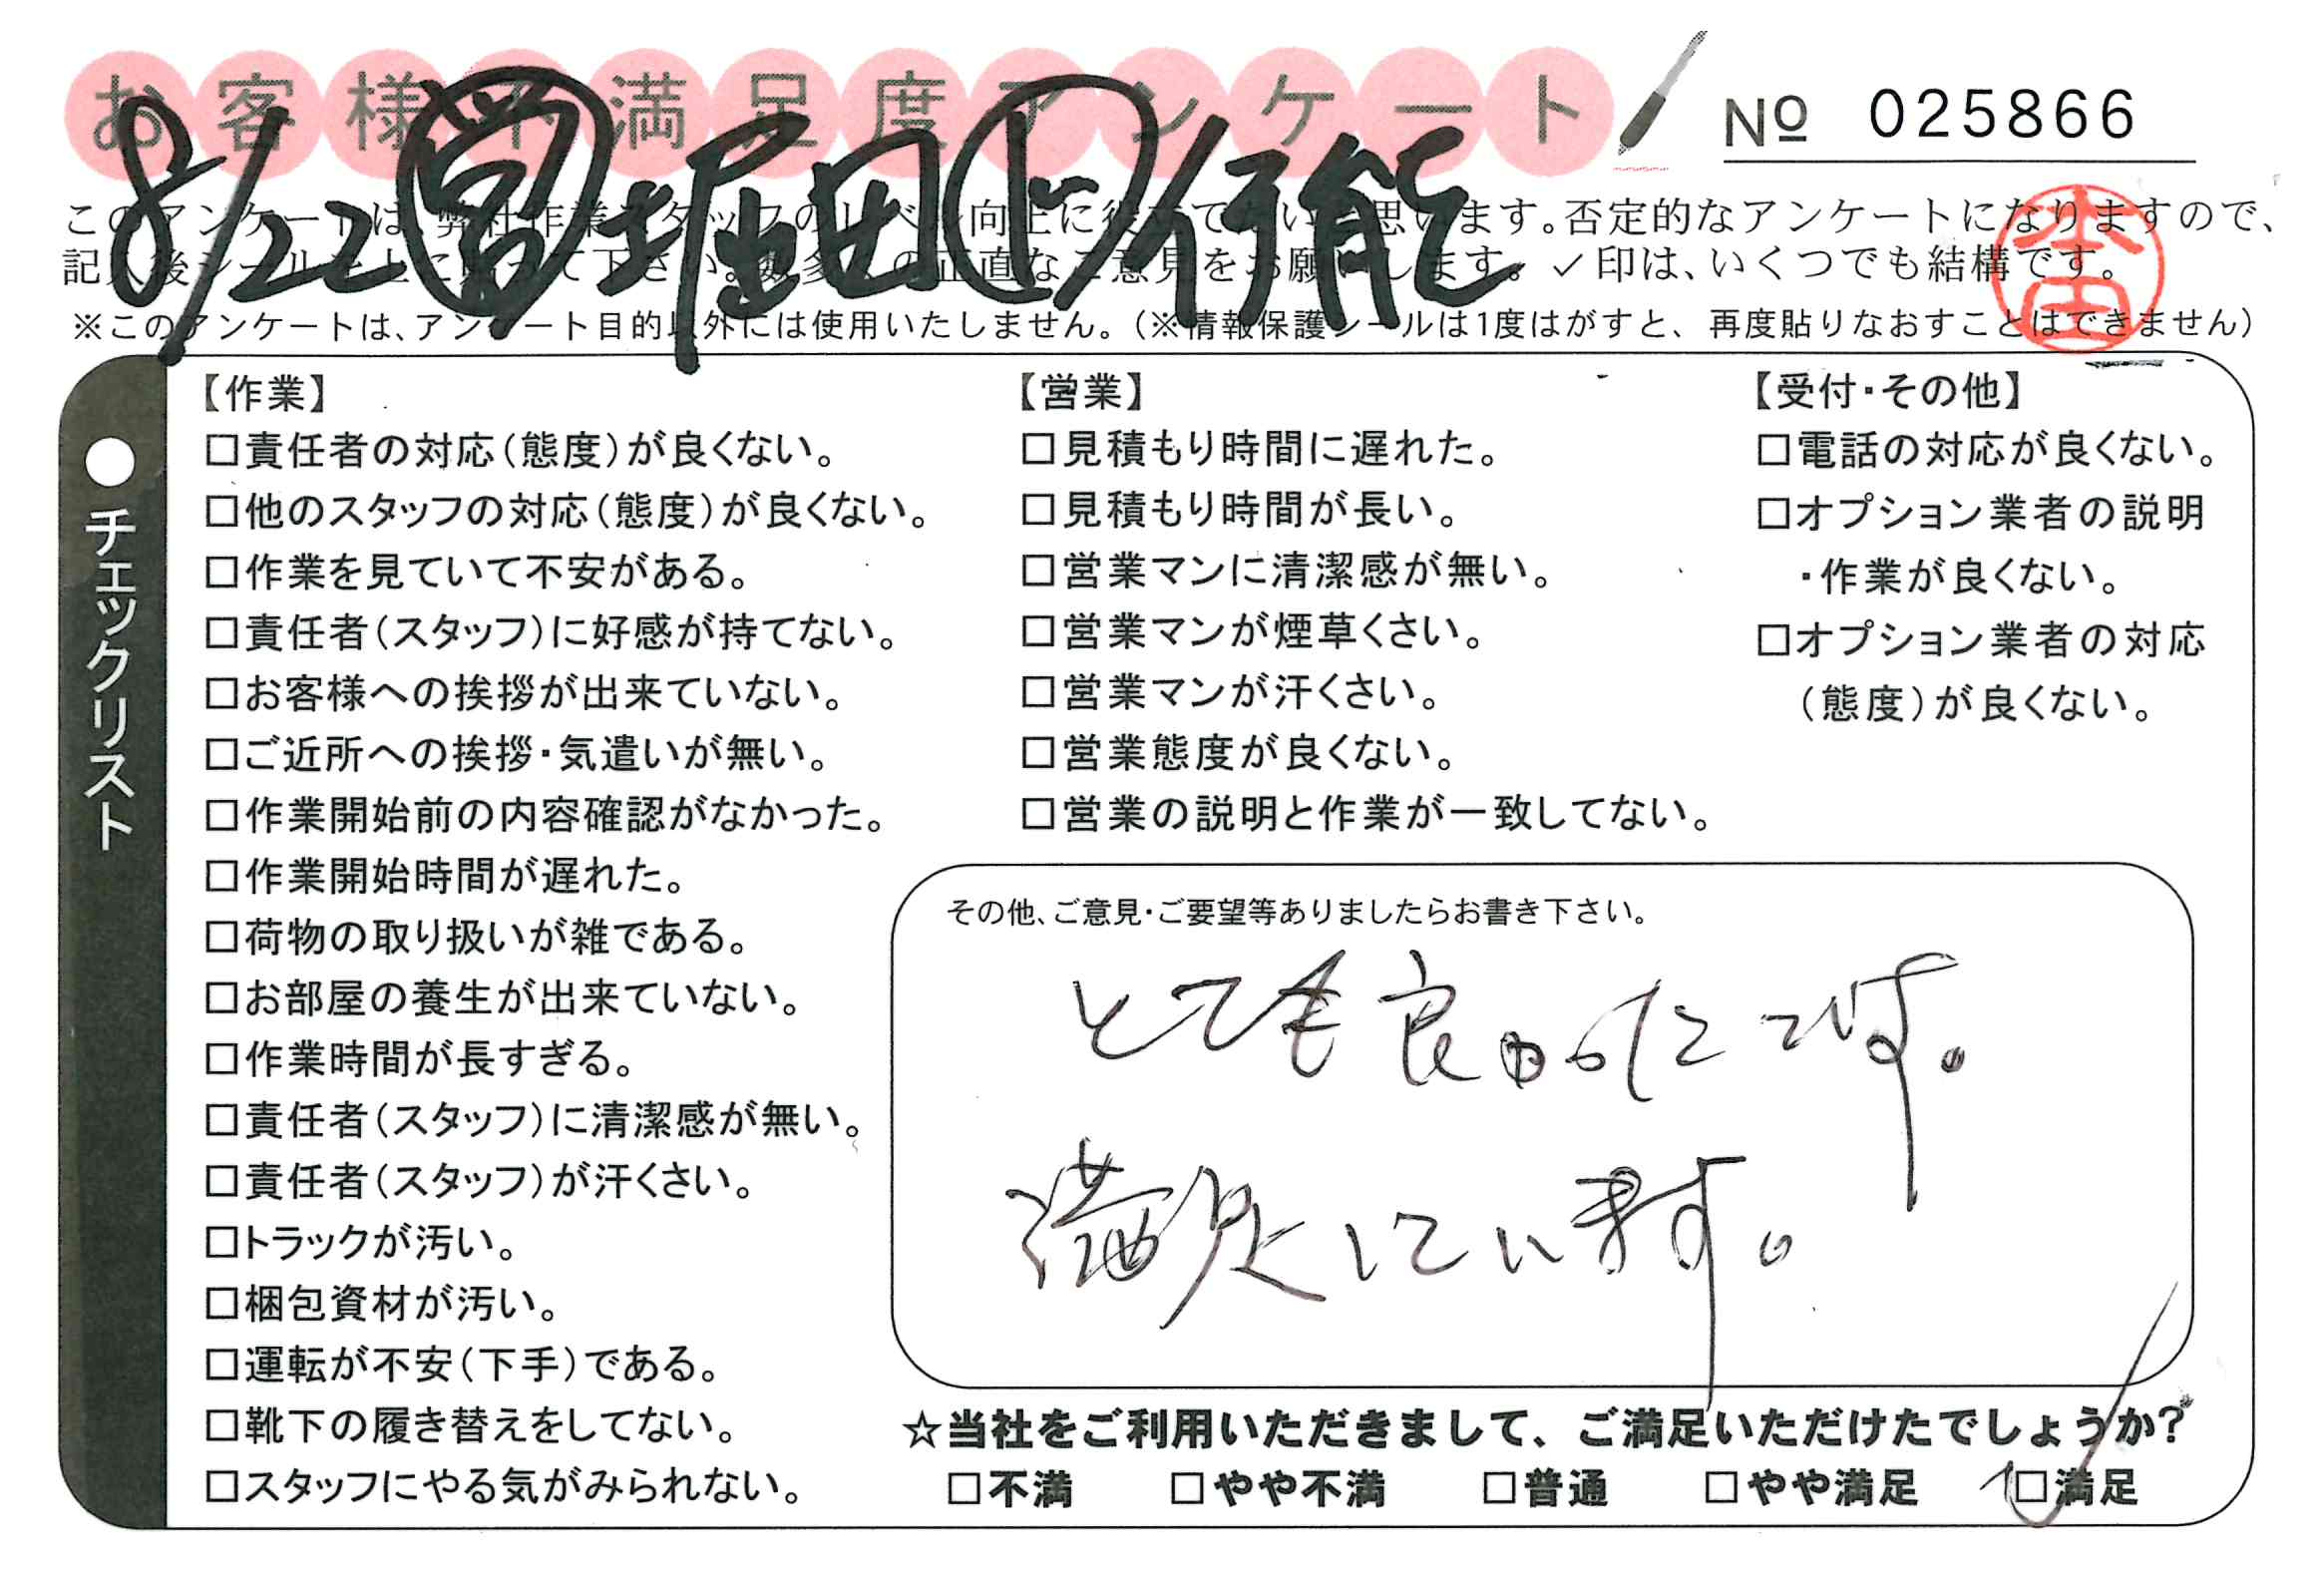 お客様不満足度アンケート
№ 025866
8/22 営 堀田 ト 行能
このアンケートは、弊社作業スタッフのレベル向上に役立てたいと思います。否定的なアンケートになりますので、
記入後シールを上に貼って下さい。数多くの正直なご意見をお願いします。✓印は、いくつでも結構です。
※このアンケートは、アンケート目的以外には使用いたしません。（※情報保護シールは1度はがすと、再度貼りなおすことはできません）
●チェックリスト
【作業】
□責任者の対応（態度）が良くない。
□他のスタッフの対応（態度）が良くない。
□作業を見ていて不安がある。
□責任者（スタッフ）に好感が持てない。
□お客様への挨拶が出来ていない。
□ご近所への挨拶・気遣いが無い。
□作業開始前の内容確認がなかった。
□作業開始時間が遅れた。
□荷物の取り扱いが雑である。
□お部屋の養生が出来ていない。
□作業時間が長すぎる。
□責任者（スタッフ）に清潔感が無い。
□責任者（スタッフ）が汗くさい。
□トラックが汚い。
□梱包資材が汚い。
□運転が不安（下手）である。
□靴下の履き替えをしてない。
□スタッフにやる気がみられない。
【営業】
□見積もり時間に遅れた。
□見積もり時間が長い。
□営業マンに清潔感が無い。
□営業マンが煙草くさい。
□営業マンが汗くさい。
□営業態度が良くない。
□営業の説明と作業が一致してない。
【受付・その他】
□電話の対応が良くない。
□オプション業者の説明
・作業が良くない。
□オプション業者の対応
（態度）が良くない。
その他、ご意見・ご要望等ありましたらお書き下さい。
とても良かったです。
満足しています。
☆当社をご利用いただきまして、ご満足いただけたでしょうか？
□不満 □やや不満 □普通 □やや満足 □満足